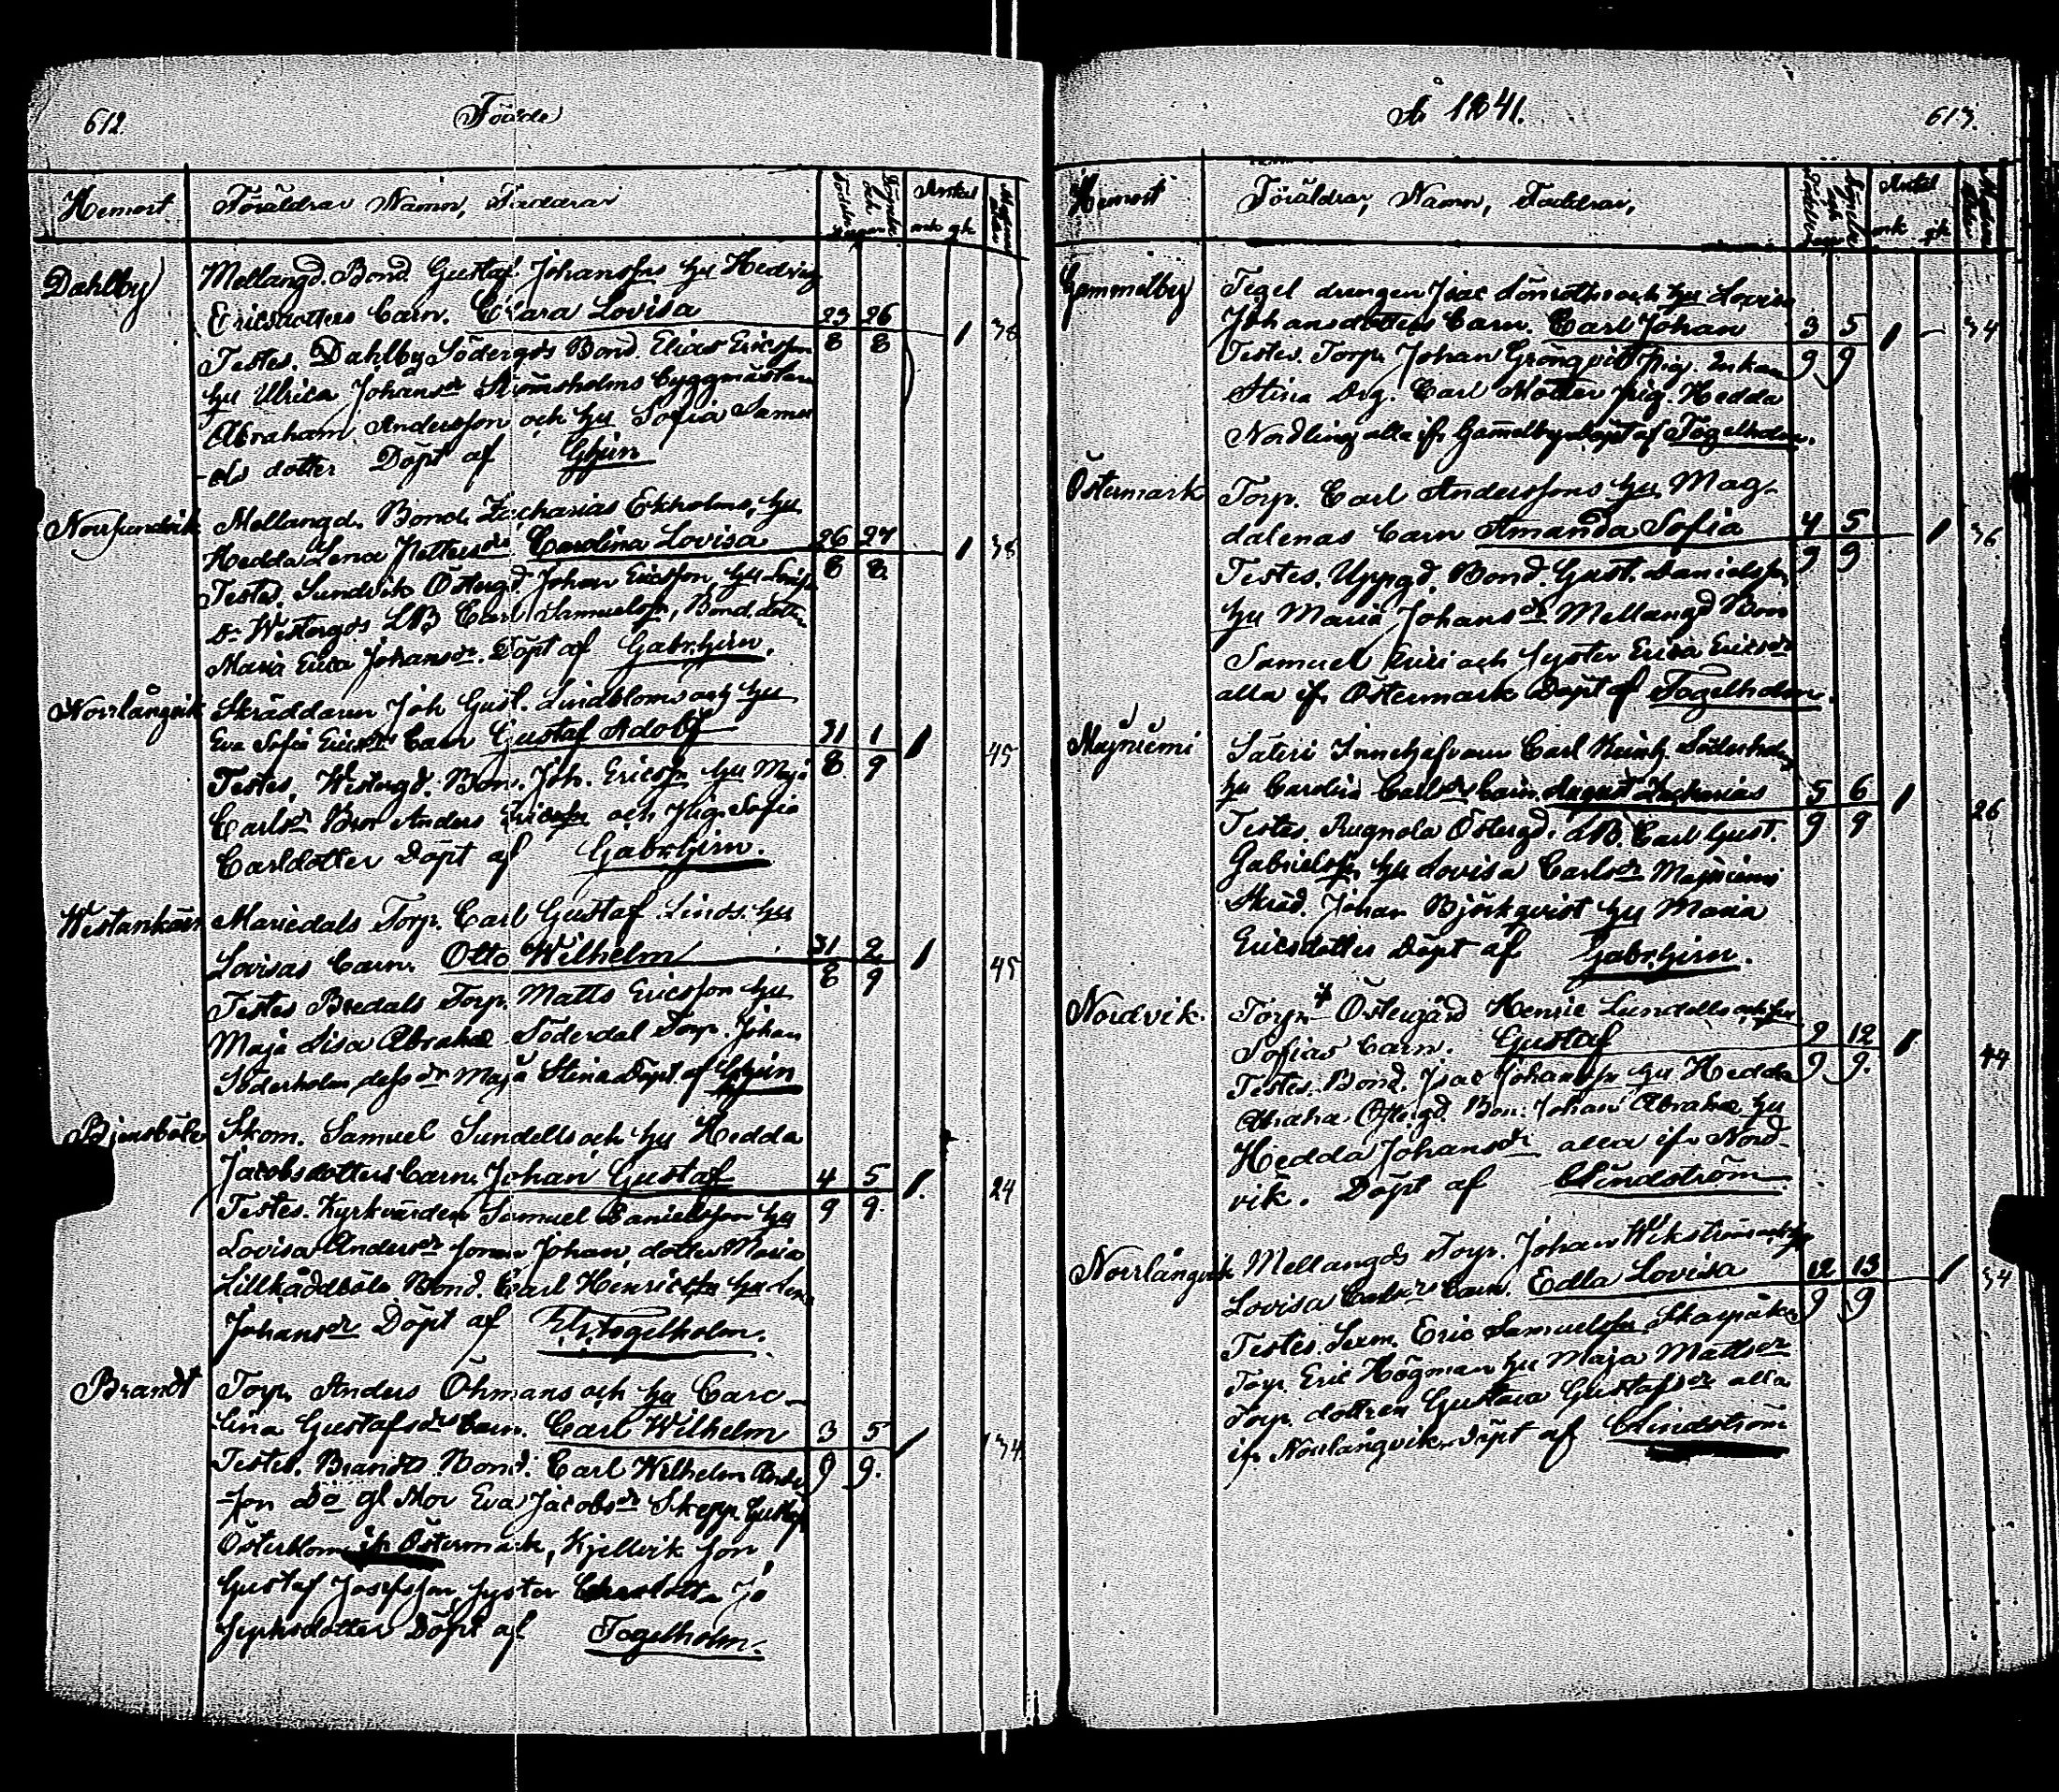 612.
Födde
Hemort
Föräldrar Namn, Faddrar
Födelse och Kyrko
dagar
Antal
mk qk
Dahlby
Mellangd. Bond. Gustaf Johanssons hu Hedvig
Ericsdotters barn. Clara Lovisa 23 26 1 38
Testes. Dahlby Södergds Bond. Elias Ericsson 8 8
hu Ulrica Johansdr Strömsholms byggmästare
Abraham Andersson och hu Sofia Samu
-els dotter Döpt af Ghirn
Norrsundvik
Mellangd. Bond. Zacharias Ekholms, hu
Hedda Lena Pettersdrs Carolina Lovisa 26 27 1 38
Testes. Sundvik Östergd Johan Ericsson hu Lovisa 8 8
Do Westergds LB Carl Samuelsson, Bond. dotter
Maria Erica Johansdr. Döpt af Gabr. hirn.
Norrlångvik
Skräddaren Joh Gust. Lindbloms och hu
Eva Sofia Ericsdrs barn Gustaf Adolf 31 1 1 45
Testes. Westergd. Bon. Joh. Ericsson hu Maja 8 9
Carlsdr Bror Anders Ericsson och pig. Sofia
Carlsdotter Döpt af Gabr hirn.
Westankärr
Mariedals Torp. Carl Gustaf Linds. hu
Lovisas barn. Otto Wilhelm 31 2 1 45
Testes Bredals Torp. Matts Ericsson hu 8 9
Maja Lisa Abrahadr Söderdal Torp. Johan
Söderholm dess dr Maja Stina Döpt af Ghirn
Bjensböle
Skom. Samuel Sundells och hu Hedda
Jacobsdotters barn. Johan Gustaf 4 5 1. 24
Testes. Kyrkvärden Samuel Danielsson hu 9 9.
Lovisa Andersdr sonen Johan dotter Maria
Lillkåddböle Bond. Carl Henricsson hu Lena
Johansdr Döpt af Fogelholm.
Brandt
Torp. Anders Öhmans och hu Caro-
lina Gustafsdrs barn. Carl Wilhelm 3 5 1 34
Testes. Brandts Bond. Carl Wilhelm Anders 9 9.
-son Do gl Mor Eva Jacobsdr Skepp. Gustaf
Österblom ifr Östermark, Kjellvik son
Gustaf Josefsson, syster Charlotta Jo
sephsdotter Döpt af Fogelholm.
År 1841.
613.
Hemort
Föräldrar, Namn, Faddrar,
Antal
mk qk
Gammelby
Tegel drengen Isac Lönroths och hu Lovisa
Johansdotters barn. Carl Johan 3 5 1 - 34
Testes. Torp. Johan Grönqvist pig. 9 9
Stina Drg. Carl Motter pig. Hedda
Nordling alla ifr Gammelby Döpt af Fogelholm.
Östermark
Torp. Carl Anderssons hu Mag-
dalenas barn Amanda Sofia 4 5 1 36
Testes. Uppgd. Bond. Gust. Danielsson 9 9
hu Maria Johansdr Mellangd Bon
Samuel Erics och syster Erica Ericsdr
alla ifr Östermark Döpt af Fogelholm.
Majniemi
Säteri Innehafvaren Carl Heinr. Söderholms
hu Carolina Carlsdrs barn. August Zacharias 5 6 1 26
Testes. Rugnola Östergd. LB. Carl Gust. 9 9
Gabrielsson hu Lovisa Carlsdr Majniemi
Skräd. Johan Björkqvist hu Maria
Ericsdotter Döpt af Gabr. hirn.
Nordvik.
Torp. Östergård Henric Lundells och hu
Sofias barn. Gustaf 9 12 1 44
Testes. Bond. Isac Johansson hu Hedda 9 9.
Abraha Östergd. Bon. Johan Abraha hu
Hedda Johansdr alla ifr Nord-
vik. Döpt af Lindström.
Norrlångvik
Mellangds Torp. Johan Wikströms och hu
Lovisa Carlsdrs barn. Edla Lovisa 12 13 1 34
Testes. Sexm. Eric Samuelsson Skarpåker 9 9
Torp. Eric Högman hu Maja Mattsdr
Torp. dottren Gustava Gustafsdr alla
ifr Norrlångvik. Döpt af Lindström